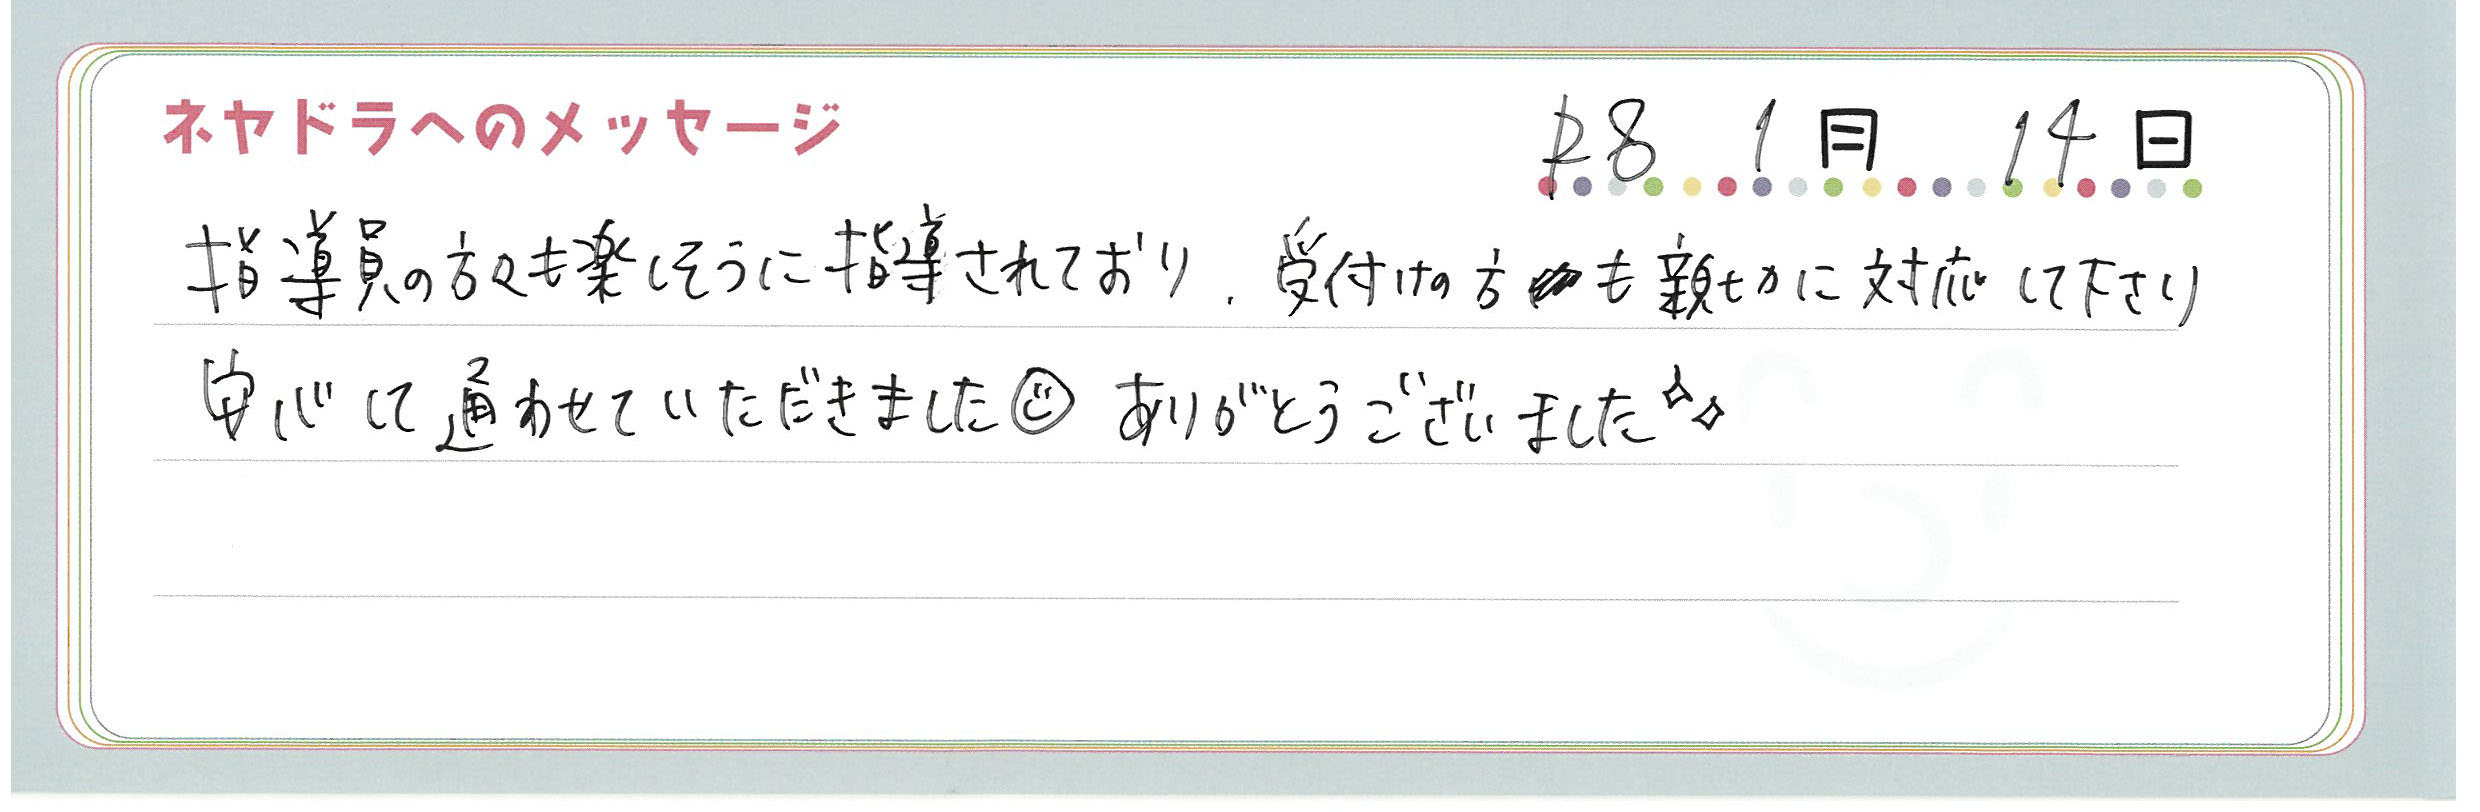 ネヤドラへのメッセージ
R8 1月 14日
指導員の方々も楽しそうに指導されており、受付けの方も親せかに対応して下さり
安心して通わせていただきました☺ ありがとうございました✧✧